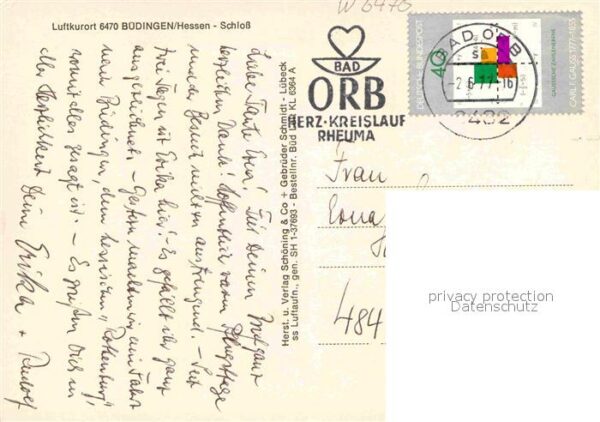 W 6470
Luftkurort 6470 BÜDINGEN/Hessen - Schloß
Liebe Tante Erna! Für Deinen Brief ganz
herzlichen Dank! Hoffentlich waren
und der Besuch nicht anstrengend. - Seit
drei Tagen ist Erika hier! - Es gefällt ihr ganz
ausgezeichnet. - Gestern machten wir eine Fahrt
nach Büdingen, dem hessischen "Rothenburg",
womit alles gesagt ist. - Es grüßen Dich
Allerherzlichst Deine Erika + Rudolf
Herst. u. Verlag Schöning & Co + Gebrüder Schmidt · Lübeck
ss Luftaufn., gen. SH 1-37693 - Bestellnr. Büd KL 6364 A
BAD
ORB
HERZ·KREISLAUF
RHEUMA
BAD ORB
-2.6.77-16
6482
40
DEUTSCHE BUNDESPOST
GAUSSSCHE ZAHLENEBENE
CARL F. GAUSS 1777-1855
Frau
Erna
484
privacy protection
Datenschutz